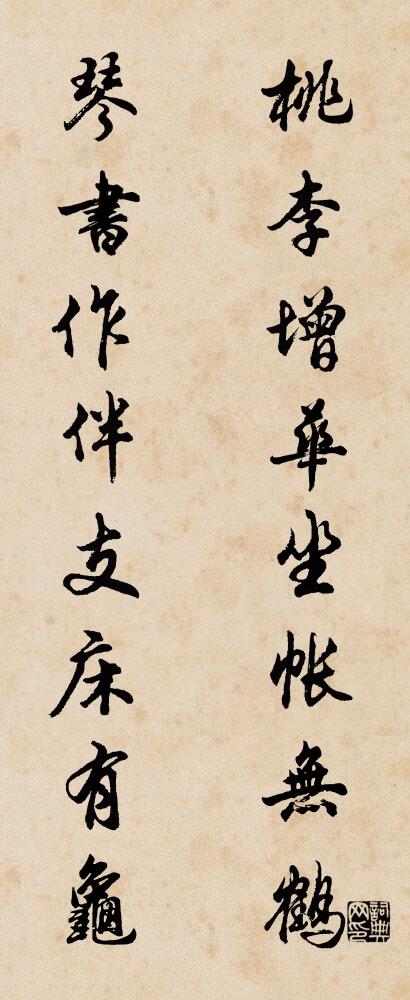 桃李增華坐帐無鶴
琴書作伴支床有龜
詞典网印